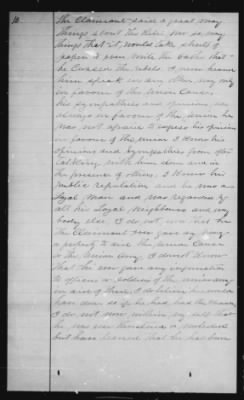 10
The Claimant said a great many
things about the Rebs so many
things that it would take sheets of
paper & pen with the oaths that
he Cursed the rebels. I never heard
him speak in any other way only
in favour of the Union Cause.
his sympathies and opinions was
always in favour of the Union he
was not afraid to express his opinion
in favour of the Union I know his
opinions and sympathies from often
talking with him alone and in
the presence of others. I know his
public reputation and he was a
loyal man and was regarded by
all his loyal neighbours and any
body else. I do not know that
the Claimant ever gave any money
or property to aid the Union Cause
or the Union Army. I do not know
that he ever gave any information
to officers or soldiers of the union army
or aid of theirs. I do believe he would
have done so if he had had the chance
I do not now within my self that
he was ever threatened or molested
but have learned that he has been